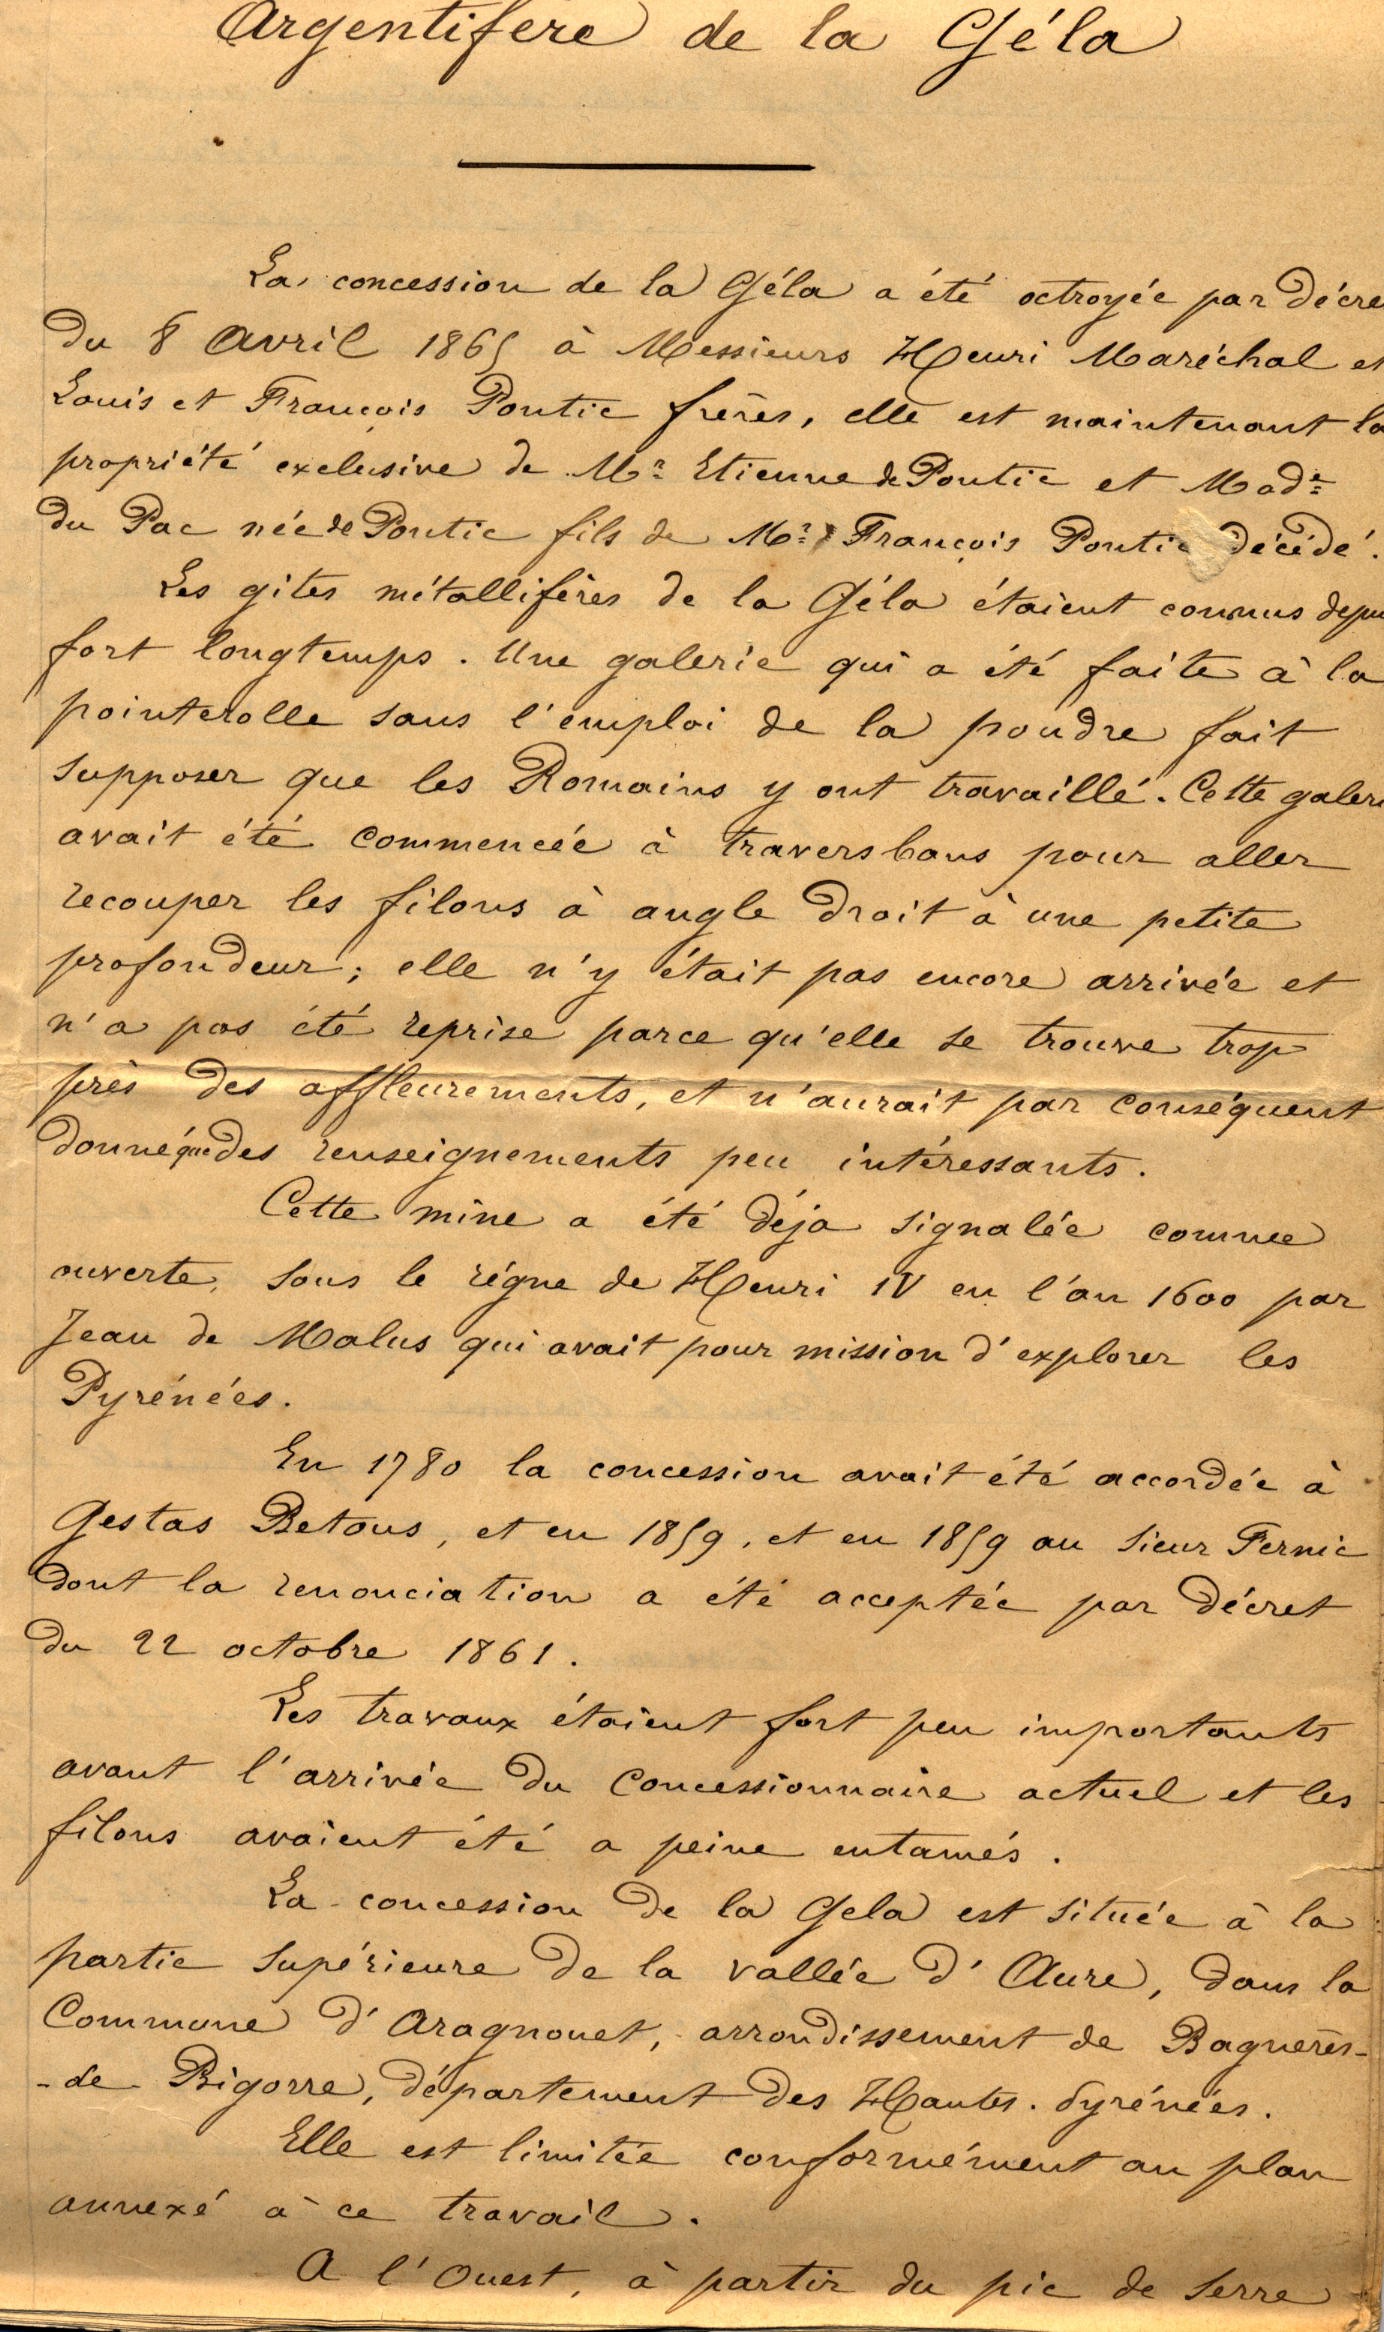 Argentifère de la Géla
La concession de la Géla a été octroyée par décre
du 8 Avril 1865 à Messieurs Henri Maréchal et
Louis et François Pontic frères, elle est maintenant la
propriété exclusive de Mr Etienne de Pontic et Made
du Pac née de Pontic fils de Mr François Pontic décédé.
Les gites métallifères de la Géla étaient connus depu
fort longtemps. Une galerie qui a été faite à la
pointerolle sans l'emploi de la poudre fait
supposer que les Romains y ont travaillé. Cette galeri
avait été commencée à travers bans pour aller
recouper les filons à angle droit à une petite
profondeur; elle n'y était pas encore arrivée et
n'a pas été reprise parce qu'elle se trouve trop
près des affleurements, et n'aurait par conséquent
donné que des renseignements peu intéressants.
Cette mine a été déja signalée comme
ouverte, sous le régne de Henri IV en l'an 1600 par
Jean de Malus qui avait pour mission d'explorer les
Pyrénées.
En 1780 la concession avait été accordée à
Gestas Betous, et en 1859, et en 1859 au sieur Fernic
dont la renonciation a été acceptée par décret
du 22 octobre 1861.
Les travaux étaient fort peu importants
avant l'arrivée du Concessionnaire actuel et les
filons avaient été a peine entamés.
La concession de la Gela est située à la
partie supérieure de la vallée d'Aure, dans la
Commune d'Aragnouet, arrondissement de Bagnères-
-de Bigorre, département des Hautes-Pyrénées.
Elle est limitée conformément au plan
annexé à ce travail.
A l'Ouest, à partir du pic de Serre